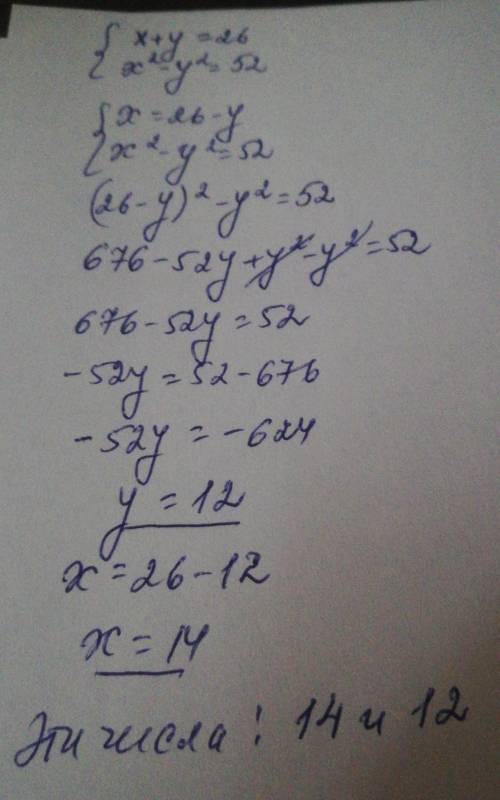 { x+y=26
{ x²-y²=52
{ x=26-y
{ x²-y²=52
(26-y)²-y²=52
676-52y+y²-y²=52
676-52y=52
-52y=52-676
-52y=-624
y=12
x=26-12
x=14
Эти числа: 14 и 12